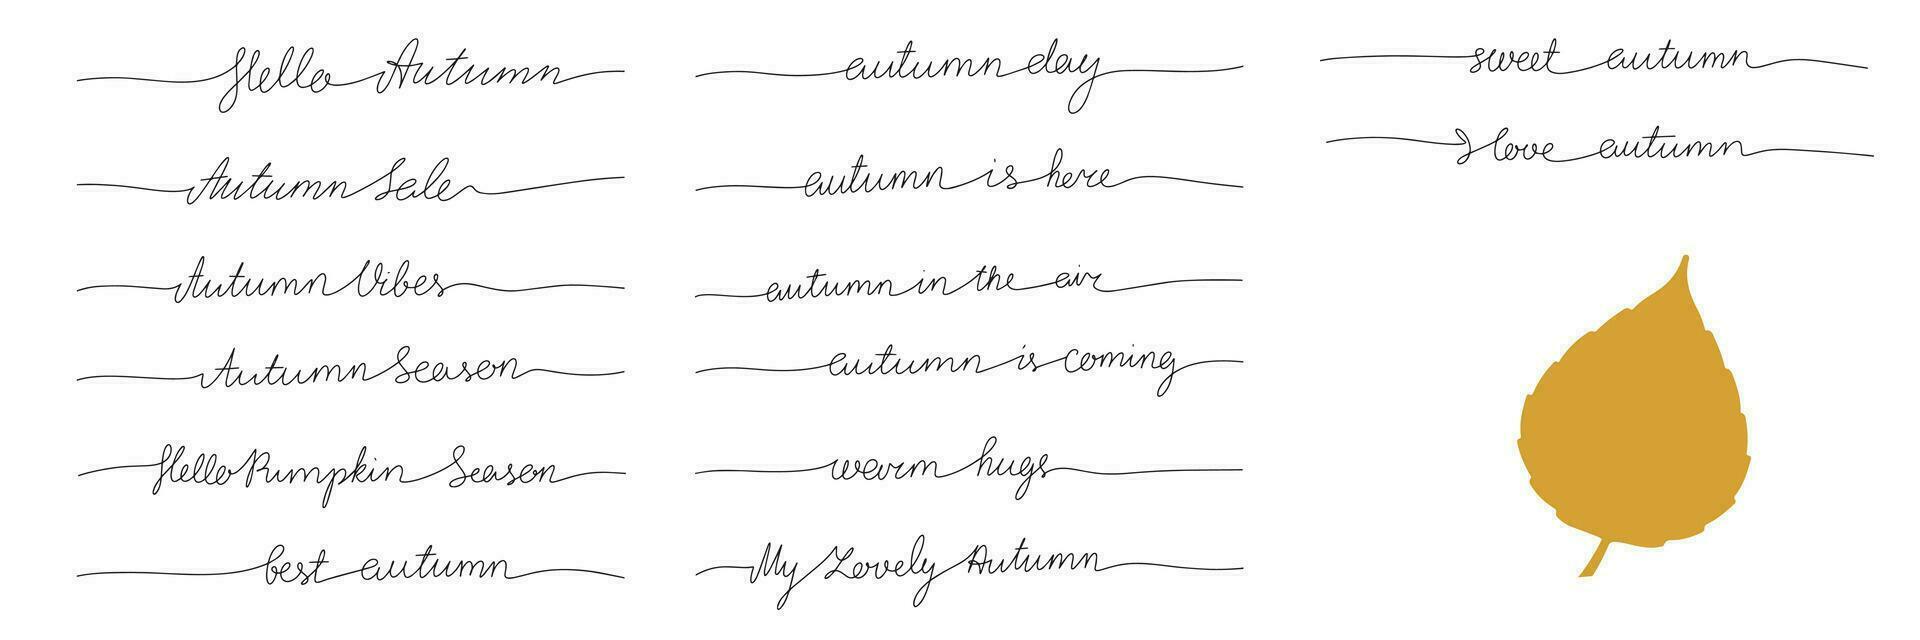 Hello Autumn
Autumn Sale
Autumn Vibes
Autumn Season
Hello Pumpkin Season
best autumn
autumn day
autumn is here
autumn in the air
autumn is coming
warm hugs
My Lovely Autumn
sweet autumn
I love autumn